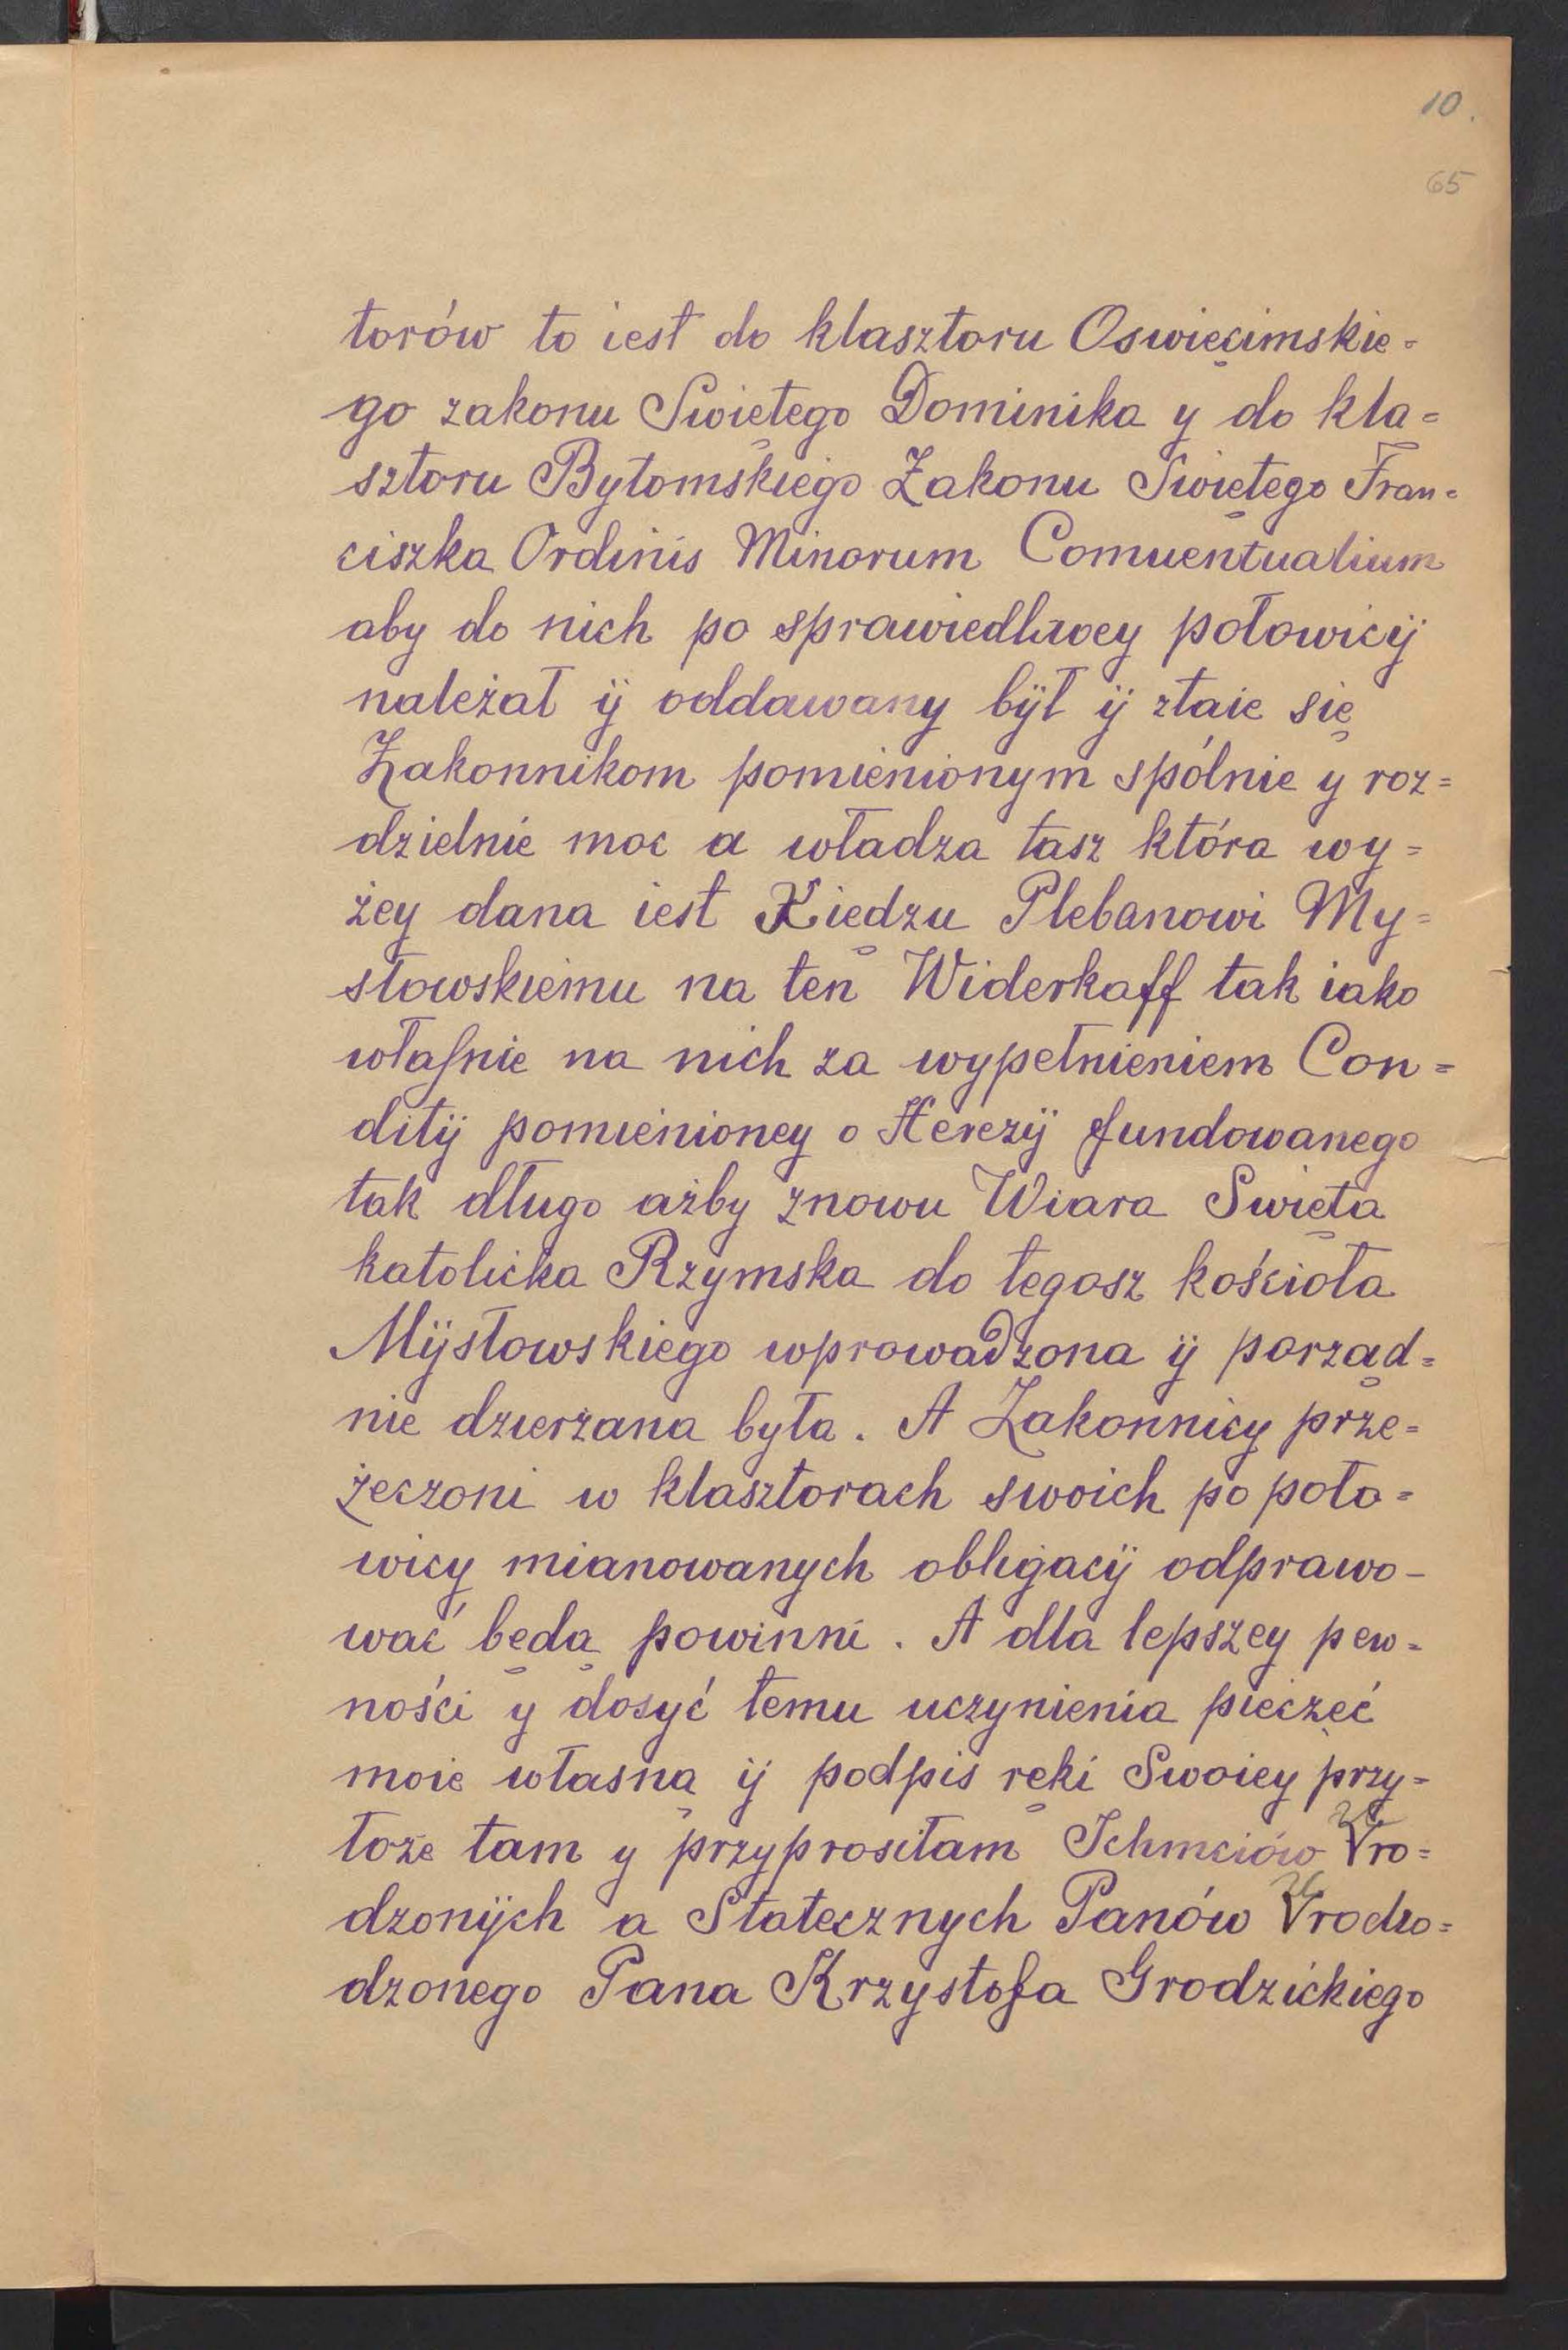 10.
65
torów to iest do klasztoru Oswięcimskie=
go zakonu Swiętego Dominika y do kla=
sztoru Bytomskiego Zakonu Swiętego Fran=
ciszka Ordinis Minorum Comuentualium
aby do nich po sprawiedliwey połowicÿ
należał ÿ oddawany bÿł ÿ ztaie się
Zakonnikom pomienionym spólnie y roz=
dzielnie moc a władza tasz która wy=
żey dana iest Xiędzu Plebanowi My=
słowskiemu na ten Widerkaff tak iako
własnie na nich za wypełnieniem Con=
ditÿ pomienioney o Herezÿ fundowanego
tak długo ażby znowu Wiara Swięta
katolicka Rzymska do tegosz kościoła
Mÿsłowskiego wprowadzona ÿ porząd=
nie dzierżana była. A Zakonnicy prze=
żeczoni w klasztorach swoich po poło=
wicy mianowanych obligacÿ odprawo-
wać będą powinni. A dla lepszey pew=
ności y dosyć temu uczynienia pieczęć
moie własną ÿ podpis ręki Swoiey przy=
łoże tam y przyprosiłam Ichmciów Vro=
dzonÿch a Statecznych Panów Vrodzo=
dzonego Pana Krzysztofa Grodzickiego